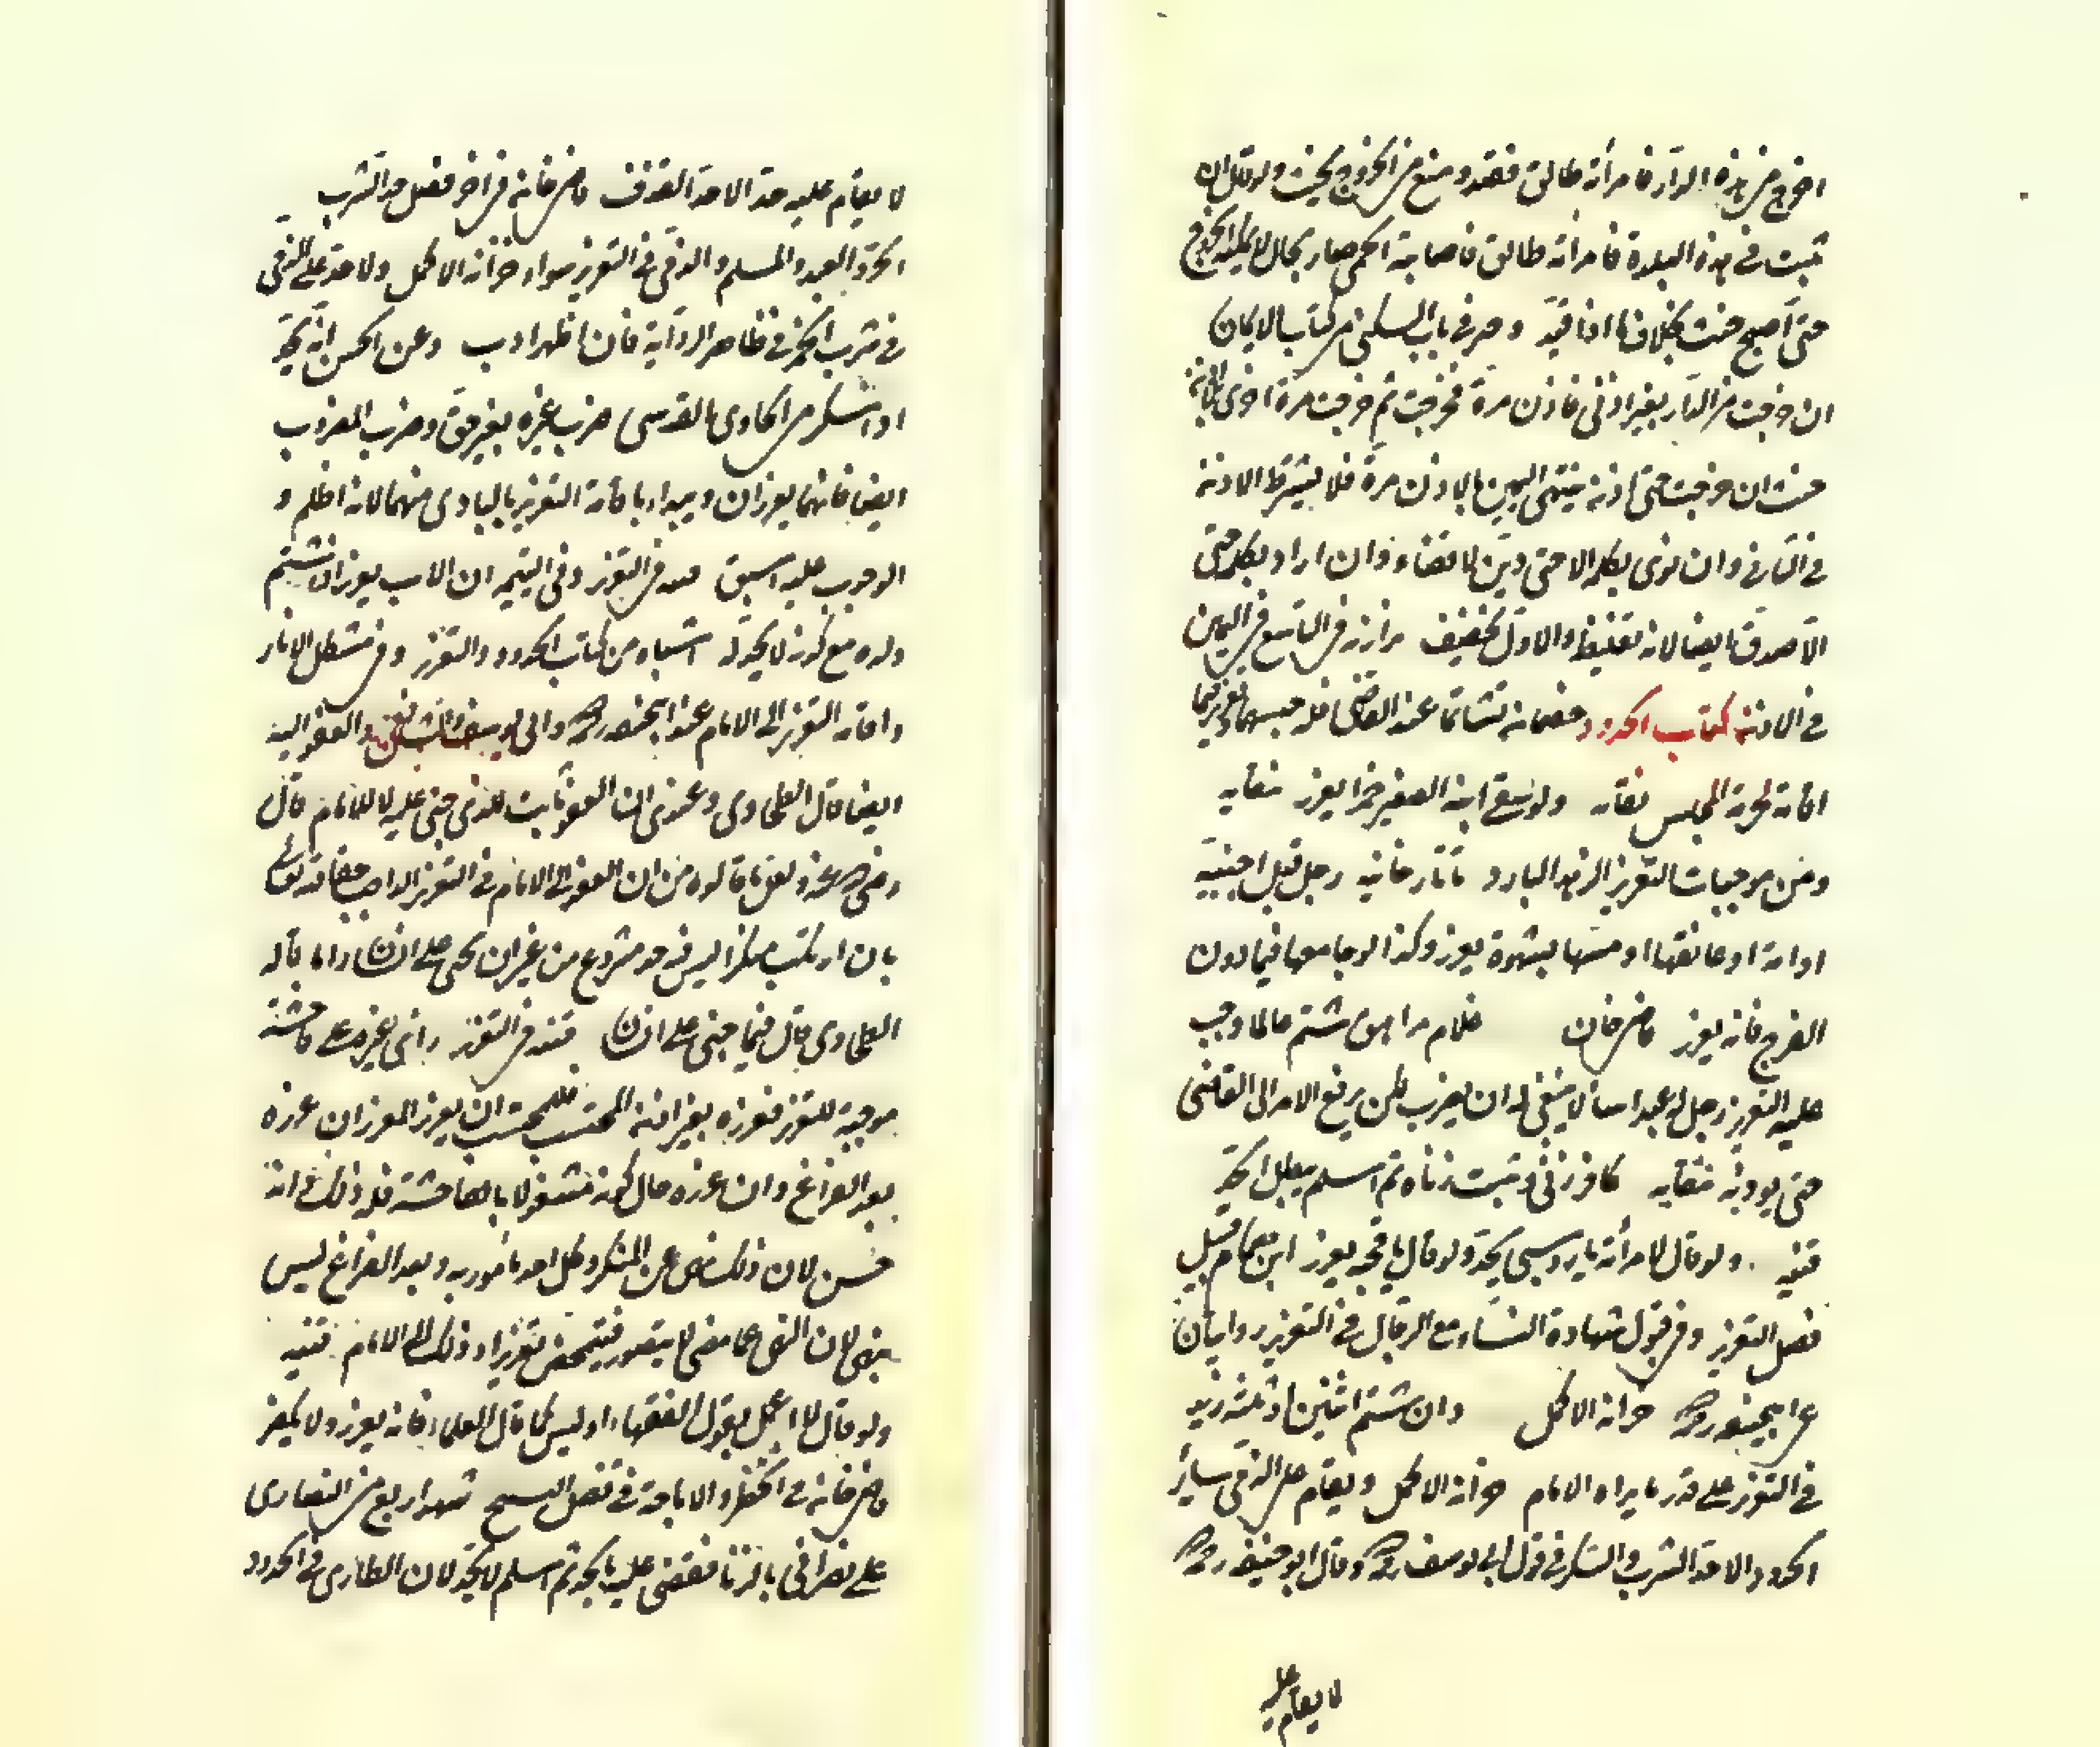 اخرج من هذه الدار فامرأته طالق فقيد ومنع من الخروج يحنث ولو قال ان
بت في هذه البلدة فامرأته طالق فاصابته الحمى صار بحال لا يمكنه الخروج
حتى اصبح حنث بخلاف ما اذا قيد وهو في باب السكنى من كتاب الايمان
ان خرجت من الدار بغير اذني فاذن مرة فخرجت ثم خرجت مرة اخرى بلا اذنه
حنث ان خرجت حتى اذنه ينتهي اليمين بالاذن مرة فلا يشترط الاذن
في الثاني وان نوى بكلمة الا حتى دين لا قضاء وان اراد بكلمة حتى
الا صدق ايضا لانه تغليظ والاول تخفيف بزازيه في التاسع في اليمين
في الاذن كتاب الحدود خصمان تشاتما عند القاضي فله حبسهما وتعزيرهما
اقامة لحرمة المجلس نقايه ولو سقى ابنه الصغير خمرا يعزر نقايه
ومن موجبات التعزير الزهد البارد تاتارخانيه رجل قبل اجنبية
او امة او عانقها او مسها بشهوة يعزر وكذا لو جامعها فيما دون
الفرج فانه يعزر قاضيخان غلام مراهق شتم عالما وجب
عليه التعزير رجل له عبد اساء لا ينبغي له ان يضرب لكن يرفع الامر الى القاضي
حتى يؤدبه نقايه كافر زنى وثبت زناه ثم اسلم يبطل الحد
قنيه ولو قال لامرأته يا روسبي يحد ولو قال يا قحبه يعزر ابن همام قبيل
فصل التعزير وفي قبول شهادة النساء مع الرجال في التعزير روايتان
عن ابيحنيفه رحمه خزانة الاكمل وان شتم اثنين او ثلثة زيد
في التعزير على قدر ما يراه الامام خزانة الاكمل ويقام على الذمي سائر
الحدود الا حد الشرب والسكر في قول ابي يوسف رحمه وقال ابو حنيفه رحمه
لا يقام عليه
لا يقام عليه حد الا حد القذف قاضيخان في اخر فصل حد الشرب
الحر والعبد والمسلم والذمي في التعزير سواء خزانة الاكمل ولا حد على الذمي
في شرب الخمر في ظاهر الرواية فان اظهر ادب وعن الحسن انه يحد
اذا سكر من الحاوي القدسي ضرب غيره بغير حق وضرب المضروب
ايضا فانهما يعزران ويبدأ باقامة التعزير بالبادي منهما لانه اظلم و
الوجوب عليه اسبق في التعزير وفي اليتيمه ان الاب يعزر اذا شتم
ولده مع كونه لا يحد له اشباه من كتاب الحدود والتعزير وفي مشكل الاثار
واقامة التعزير الى الامام عند ابيحنيفه رحمه وابي يوسف والشافعي والعفو اليه
ايضا قال الطحاوي وعندي ان العفو ثابت للذي جنى عليه لا للامام قال
رضي الله عنه ولعل ما قالوه من ان العفو الى الامام في التعزير الواجب حقا لله تعالى
بان ارتكب منكرا ليس فيه حد مشروع من غير ان يجني على انسان وما قاله
الطحاوي قال فيما جنى على انسان قنيه في التعزير رأى غيره على فاحشة
موجبة للتعزير فعزره بغير اذن المحتسب فللمحتسب ان يعزر المعزر ان عزره
بعد الفراغ وان عزره حال كونه مشغولا بالفاحشة فله ذلك وانه
حسن لان ذلك نهي عن المنكر وكل احد مأمور به وبعد الفراغ ليس
بنهي لان النهي عما مضى لا يتصور فيتمحض تعزيرا وذلك الى الامام قنيه
ولو قال لا اعمل بقول الفقهاء او ليس كما قال العلماء فانه يعزر ولا يكفر
قاضيخان في الحظر والاباحة في فصل التسبيح شهد اربع من النصارى
على نصراني بالزنا فقضى عليه بالحد ثم اسلم لا يحد لان الطاري في الحدود